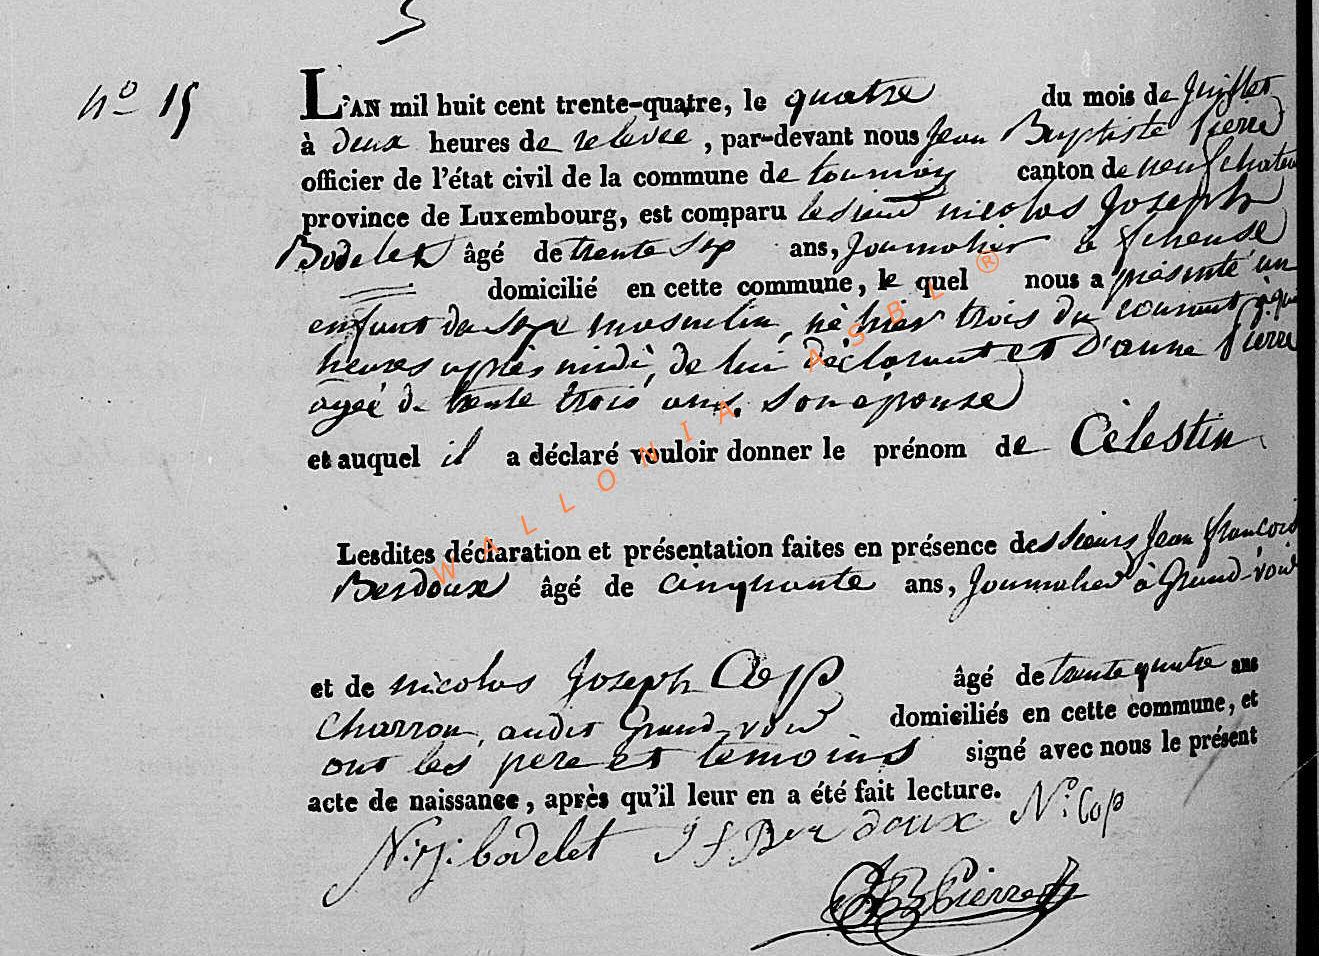 no 15
L'AN mil huit cent trente-quatre, le quatre du mois de Juillet
à deux heures de relevée, par-devant nous Jean Baptiste Pierre
officier de l'état civil de la commune de tournay canton de neufchateau
province de Luxembourg, est comparu le sieur nicolas Joseph
Bodelet âgé de trente sep ans, Journalier à
domicilié en cette commune, le quel nous a présenté un
enfant de sexe masculin, né hier trois du courant à
heures après midi, de lui déclarant et d'anne Pierre
agée de trente trois ans, son épouse
et auquel il a déclaré vouloir donner le prénom de Célestin
Lesdites déclaration et présentation faites en présence des sieurs Jean françois
Berdoux âgé de cinquante ans, Journalier à Grand-voir
et de nicolas Joseph Cop âgé de trente quatre ans
Charron, audit Grand-voir domiciliés en cette commune, et
ont les père et témoins signé avec nous le présent
acte de naissance, après qu'il leur en a été fait lecture.
N:J: bodelet J f Berdoux No: Cop
JB Pierre
WALLONIA ASBL ®